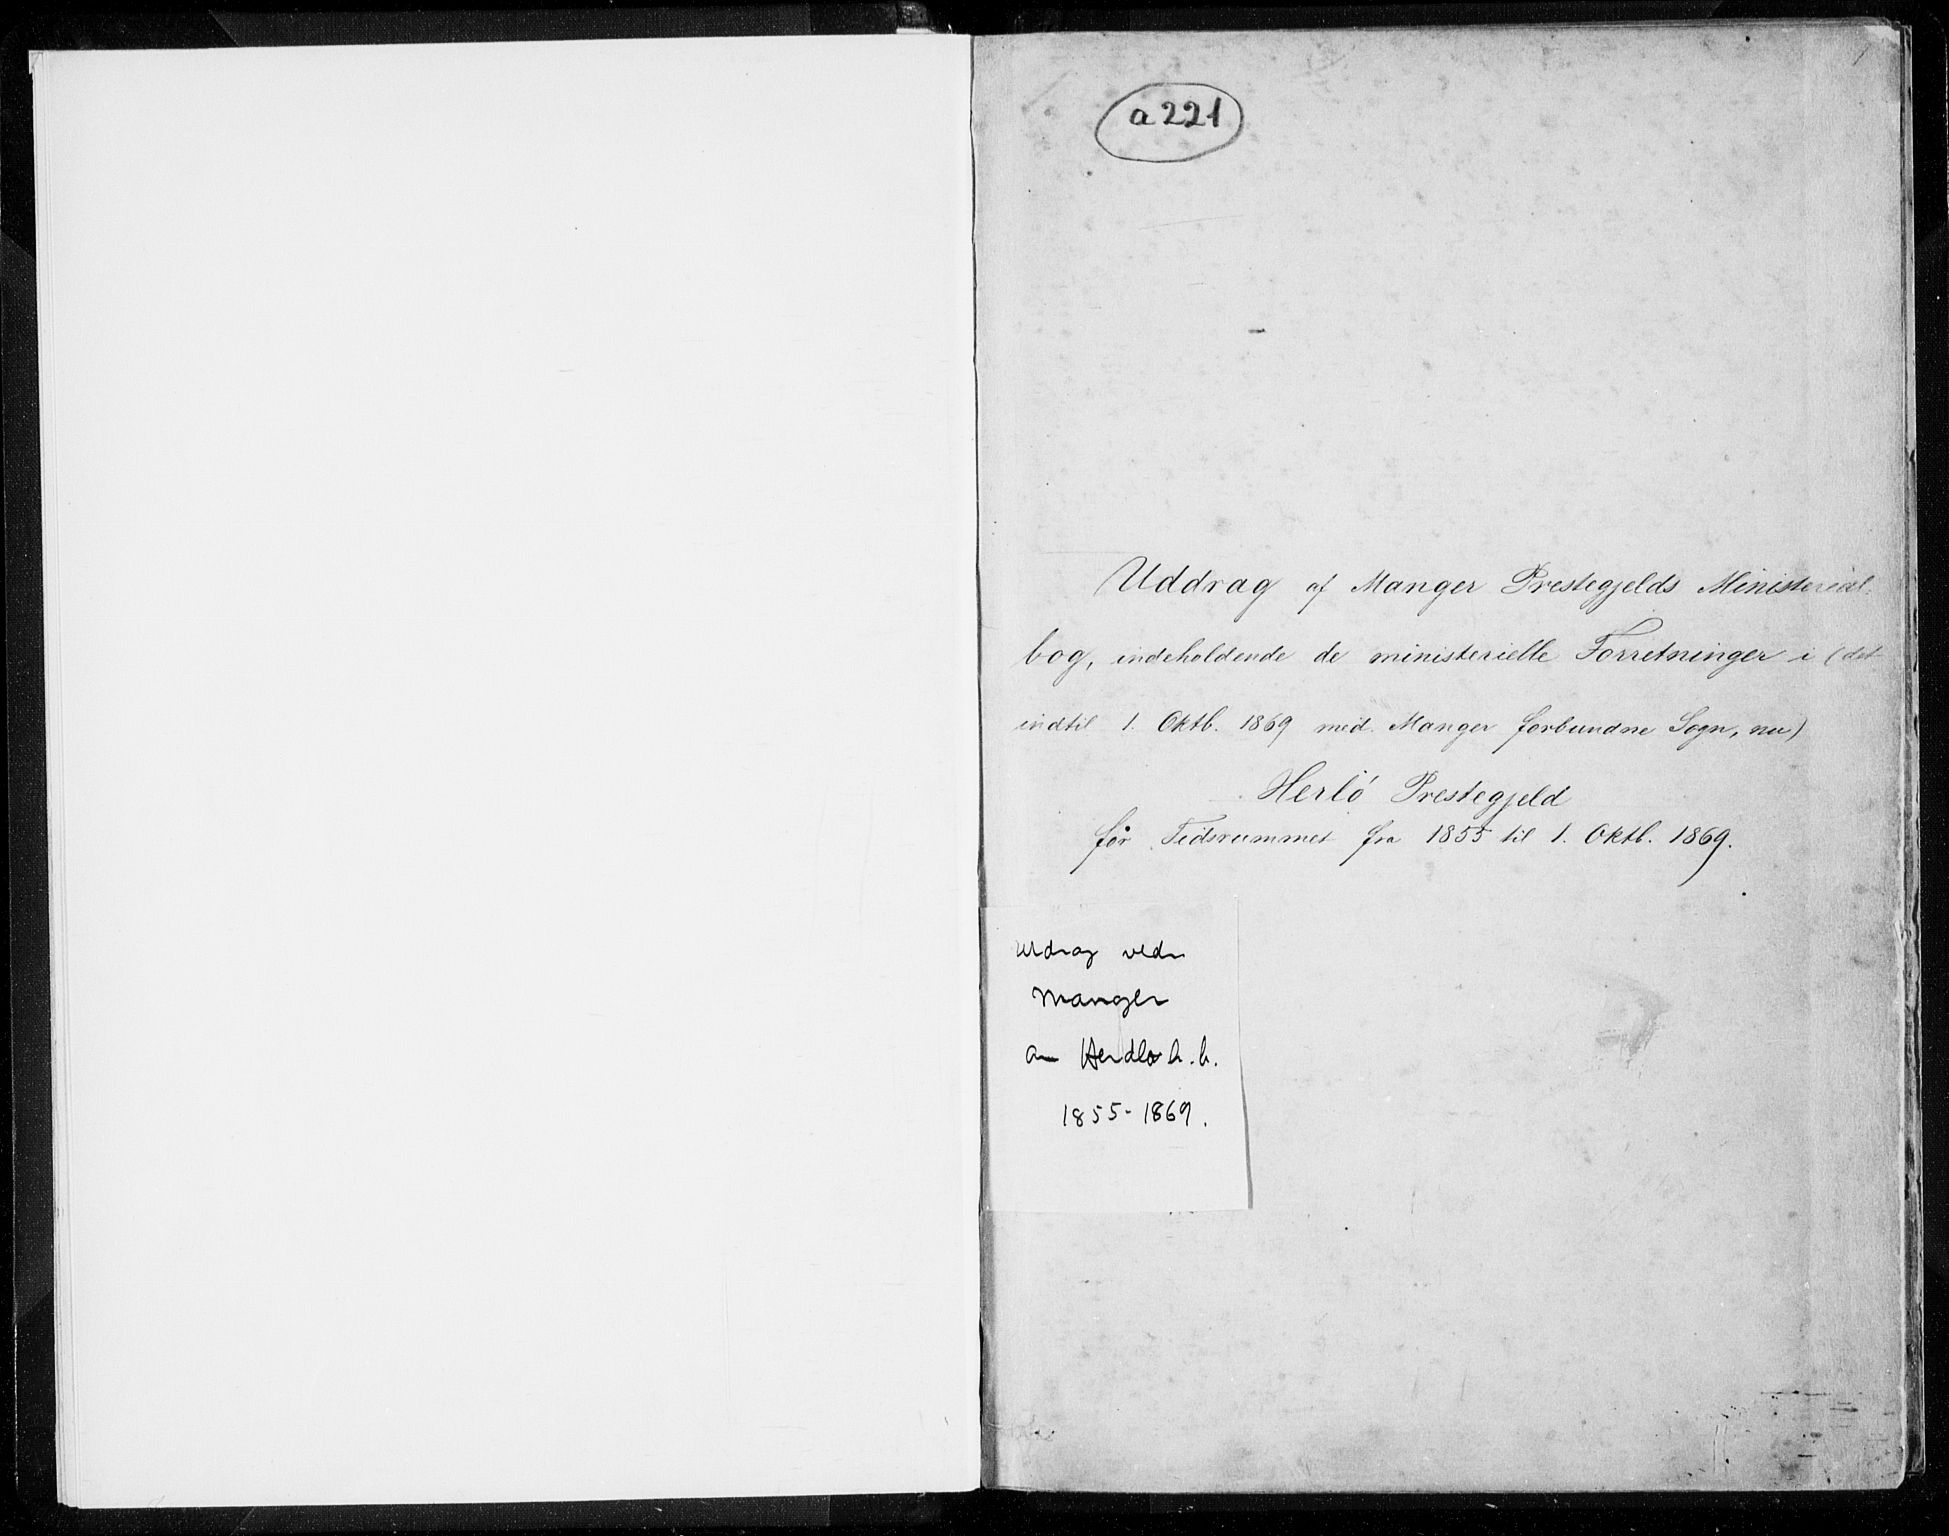 a 221
Uddrag af Manger Prestegjelds Ministerial-
bog, indeholdende de ministerielle Forretninger i (det
indtil 1. Oktb. 1869 med Manger forbundne Sogn, nu)
Herlö Prestegjeld
før Tidsrummet fra 1855 til 1. Oktb. 1869.
Utdrag vedr
Manger
av Herdla k.b.
1855-1869.